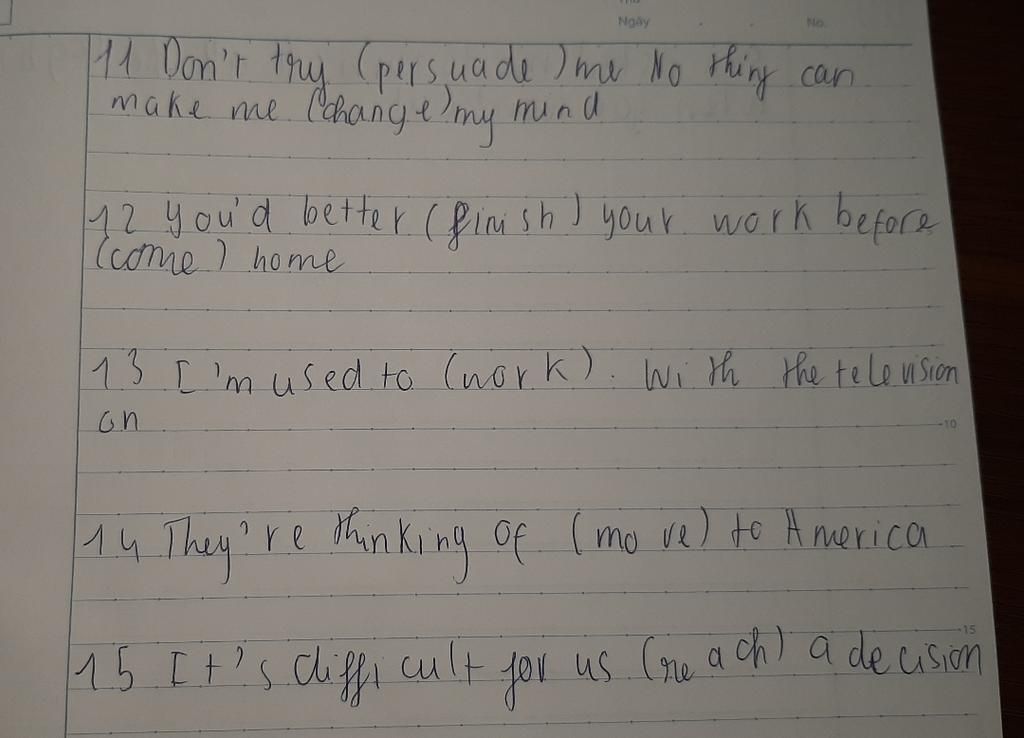 Thứ
Ngày . . No.
11 Don't try (persuade) me No thing can
make me (change) my mind
12 You'd better (finish) your work before
(come) home
13 I'm used to (work). With the television
on
10
14 They're thinking of (move) to America
15
15 It's difficult for us (reach) a decision